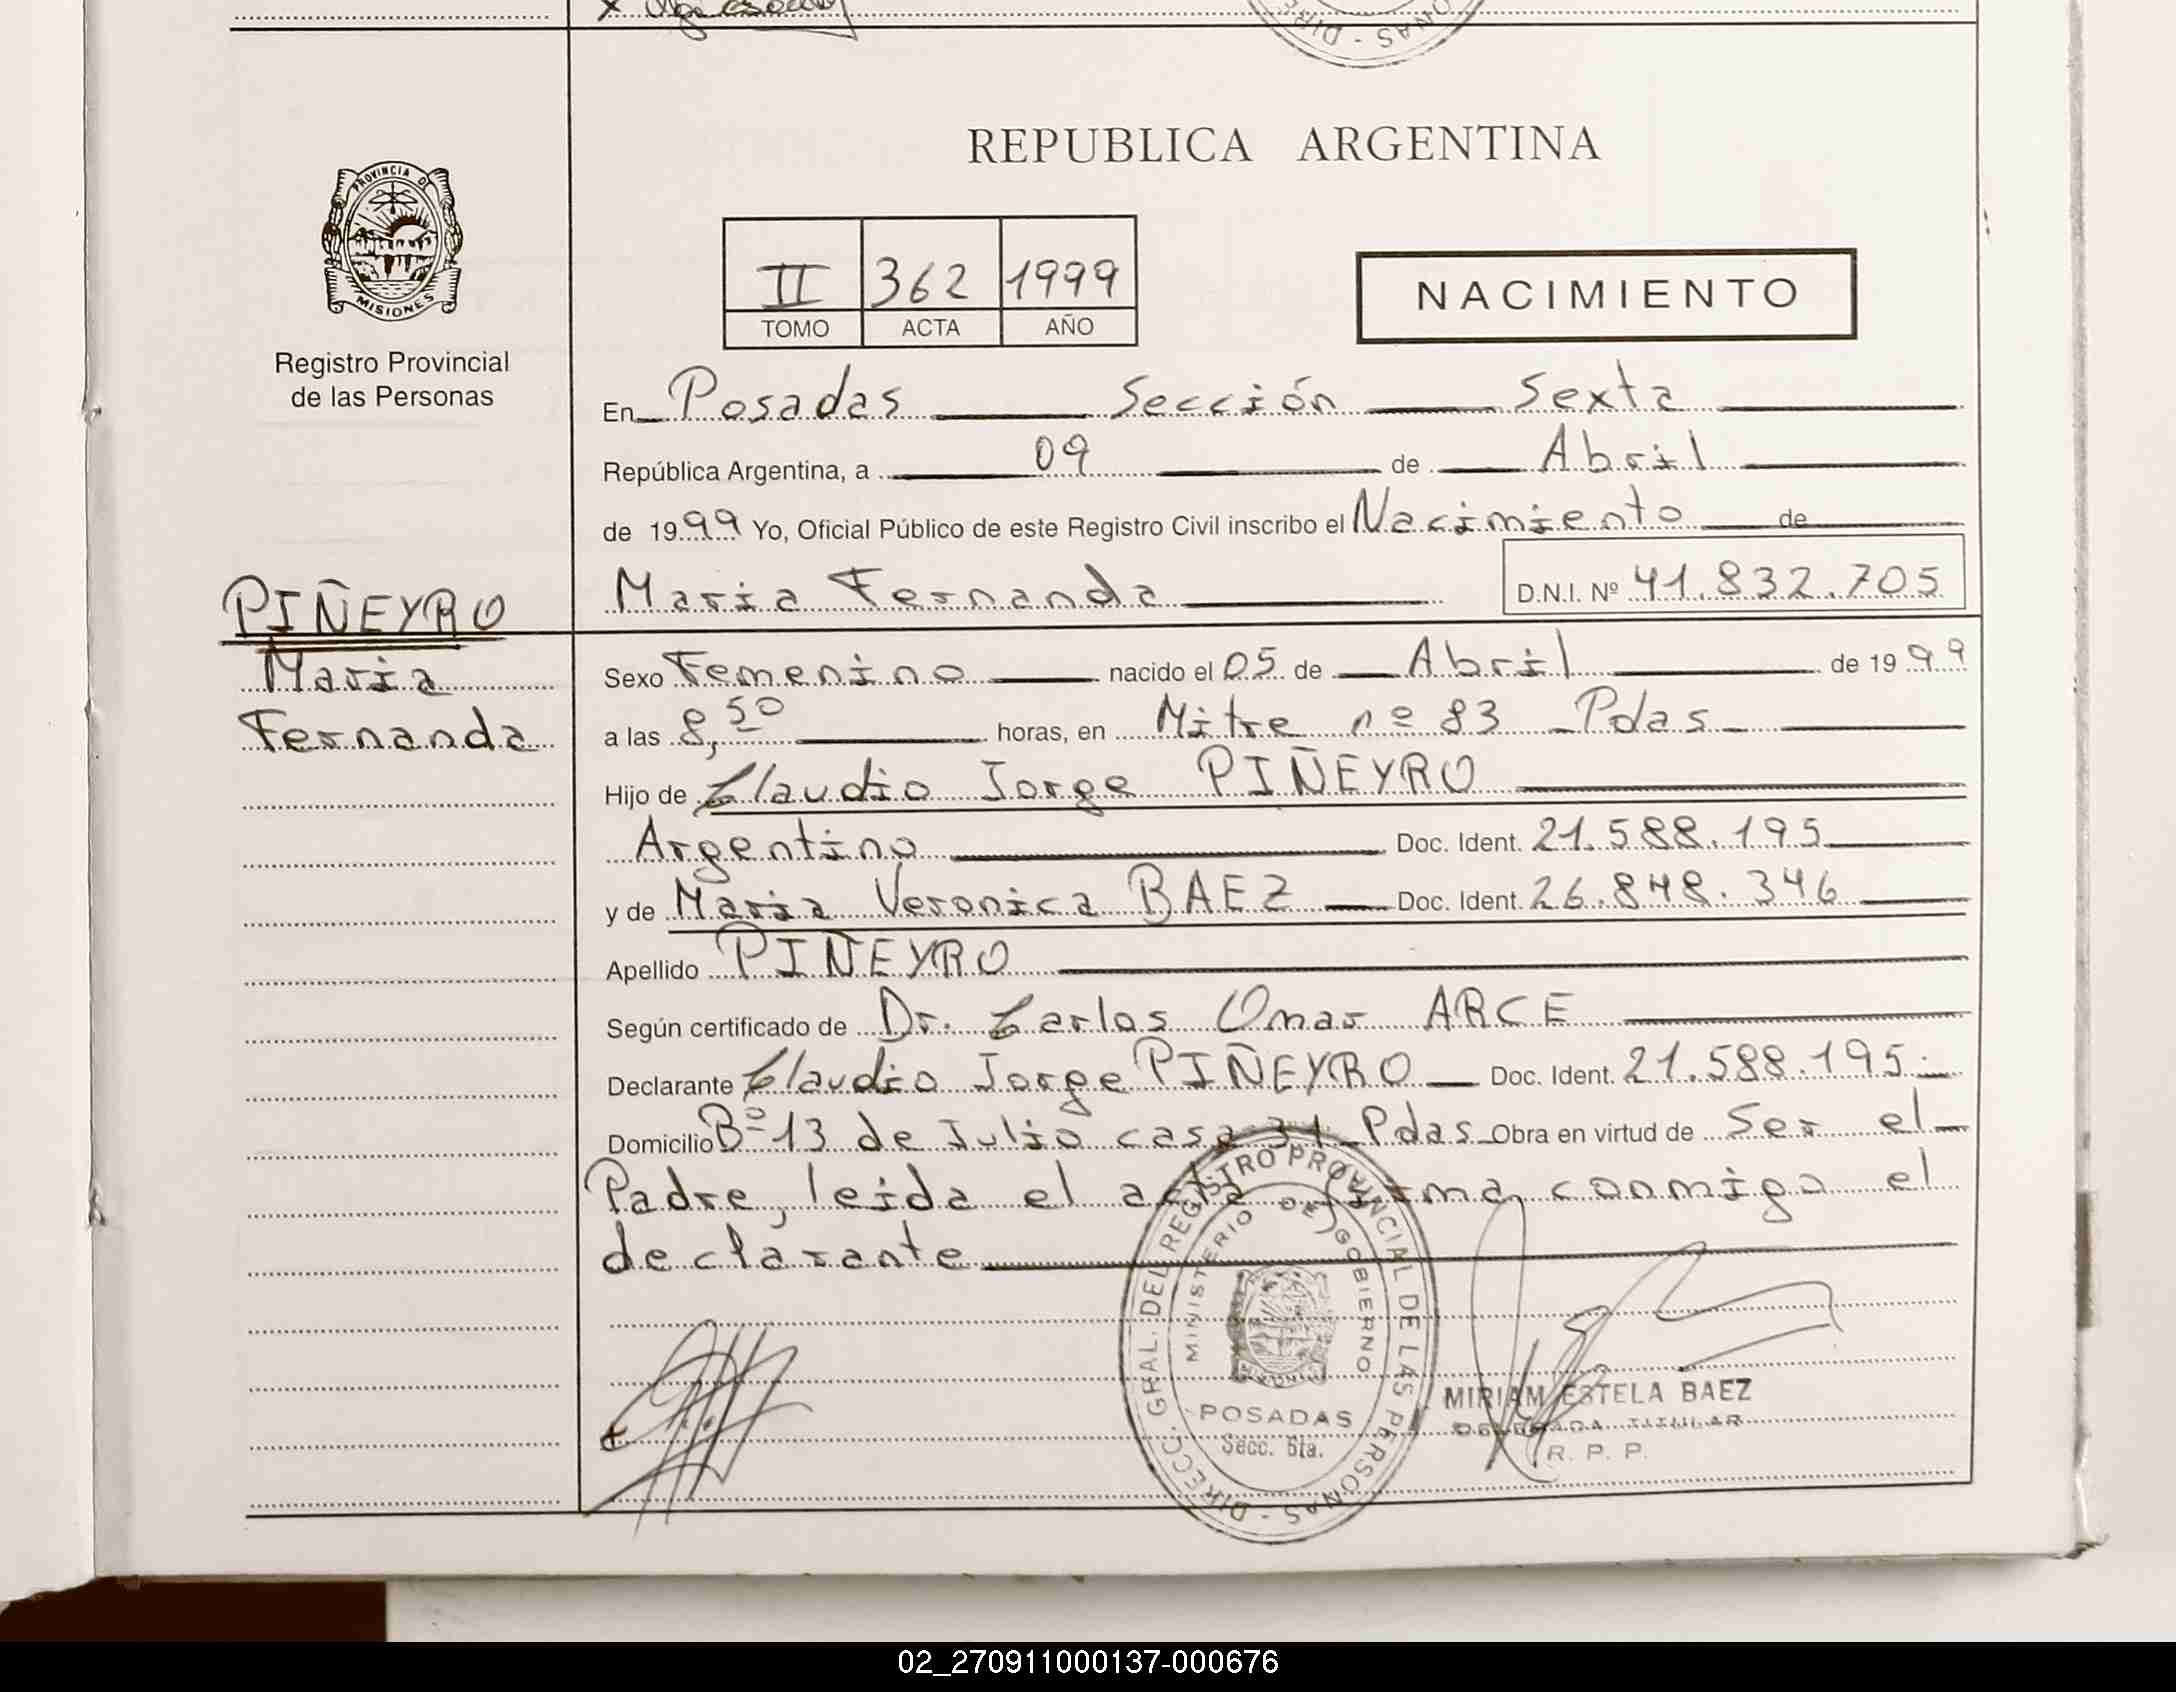 REPUBLICA ARGENTINA
PROVINCIA DE
MISIONES
Registro Provincial
de las Personas
II 362 1999
TOMO ACTA AÑO
NACIMIENTO
En Posadas Sección Sexta
República Argentina, a 09 de Abril
de 1999 Yo, Oficial Público de este Registro Civil inscribo el Nacimiento de
Maria Fernanda D.N.I. Nº 41.832.705
PIÑEYRO
Maria
Fernanda
Sexo Femenino nacido el 05 de Abril de 1999
a las 8,50 horas, en Mitre nº 83 _Pdas_
Hijo de Claudio Jorge PIÑEYRO
Argentino Doc. Ident. 21.588.195
y de Maria Veronica BAEZ Doc. Ident. 26.848.346
Apellido PIÑEYRO
Según certificado de Dr. Carlos Omar ARCE
Declarante Claudio Jorge PIÑEYRO Doc. Ident. 21.588.195.
Domicilio Bº 13 de Julio casa 31_Pdas_ Obra en virtud de Ser el
Padre, leida el acta firma conmigo el
declarante
DIRECC. GRAL. DEL REGISTRO PROVINCIAL DE LAS PERSONAS -
MINISTERIO DE GOBIERNO
POSADAS
Secc. 6ta.
MIRIAM ESTELA BAEZ
DELEGADA TITULAR
R. P. P.
02_270911000137-000676